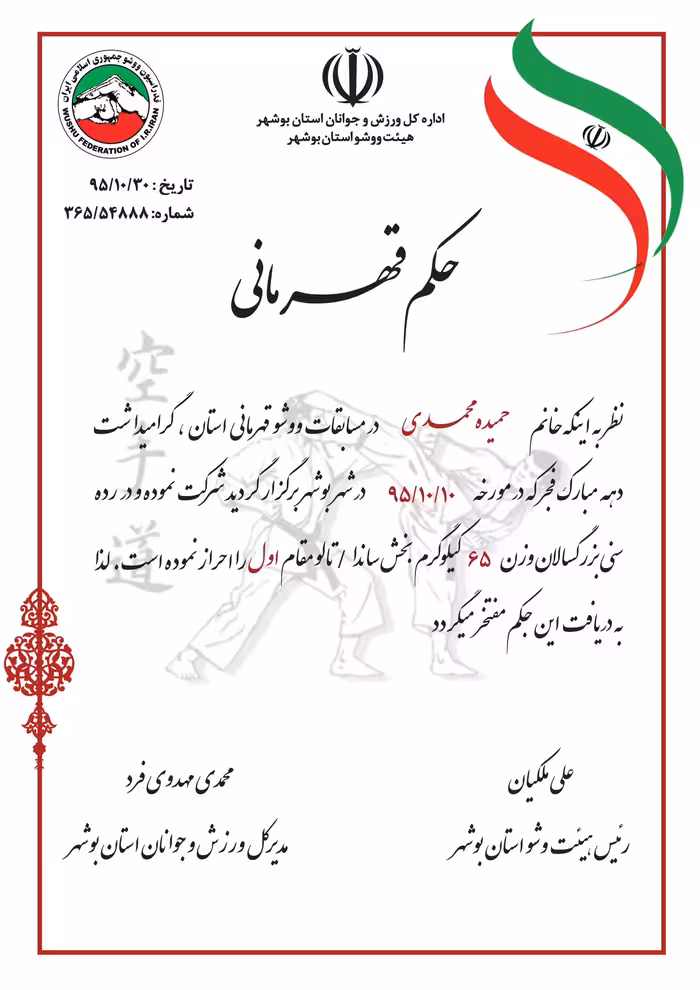 فدراسیون ووشو جمهوری اسلامی ایران
WUSHU FEDERATION OF I.R.IRAN
اداره کل ورزش و جوانان استان بوشهر
هیئت ووشو استان بوشهر
تاریخ : ۹۵/۱۰/۳۰
شماره: ۳۶۵/۵۴۸۸۸
حکم قهرمانی
نظر به اینکه خانم حمیده محمدی در مسابقات ووشو قهرمانی استان ، گرامیداشت
دهه مبارک فجر که در مورخه ۹۵/۱۰/۱۰ در شهر بوشهر برگزار گردید شرکت نموده و در رده
سنی بزرگسالان وزن ۶۵ کیلوگرم بخش ساندا / تالو مقام اول را احراز نموده است. لذا
به دریافت این حکم مفتخر میگردد
空手道
علی ملکیان
رئیس هیئت وشو استان بوشهر
محمدی مهدوی فرد
مدیرکل ورزش و جوانان استان بوشهر